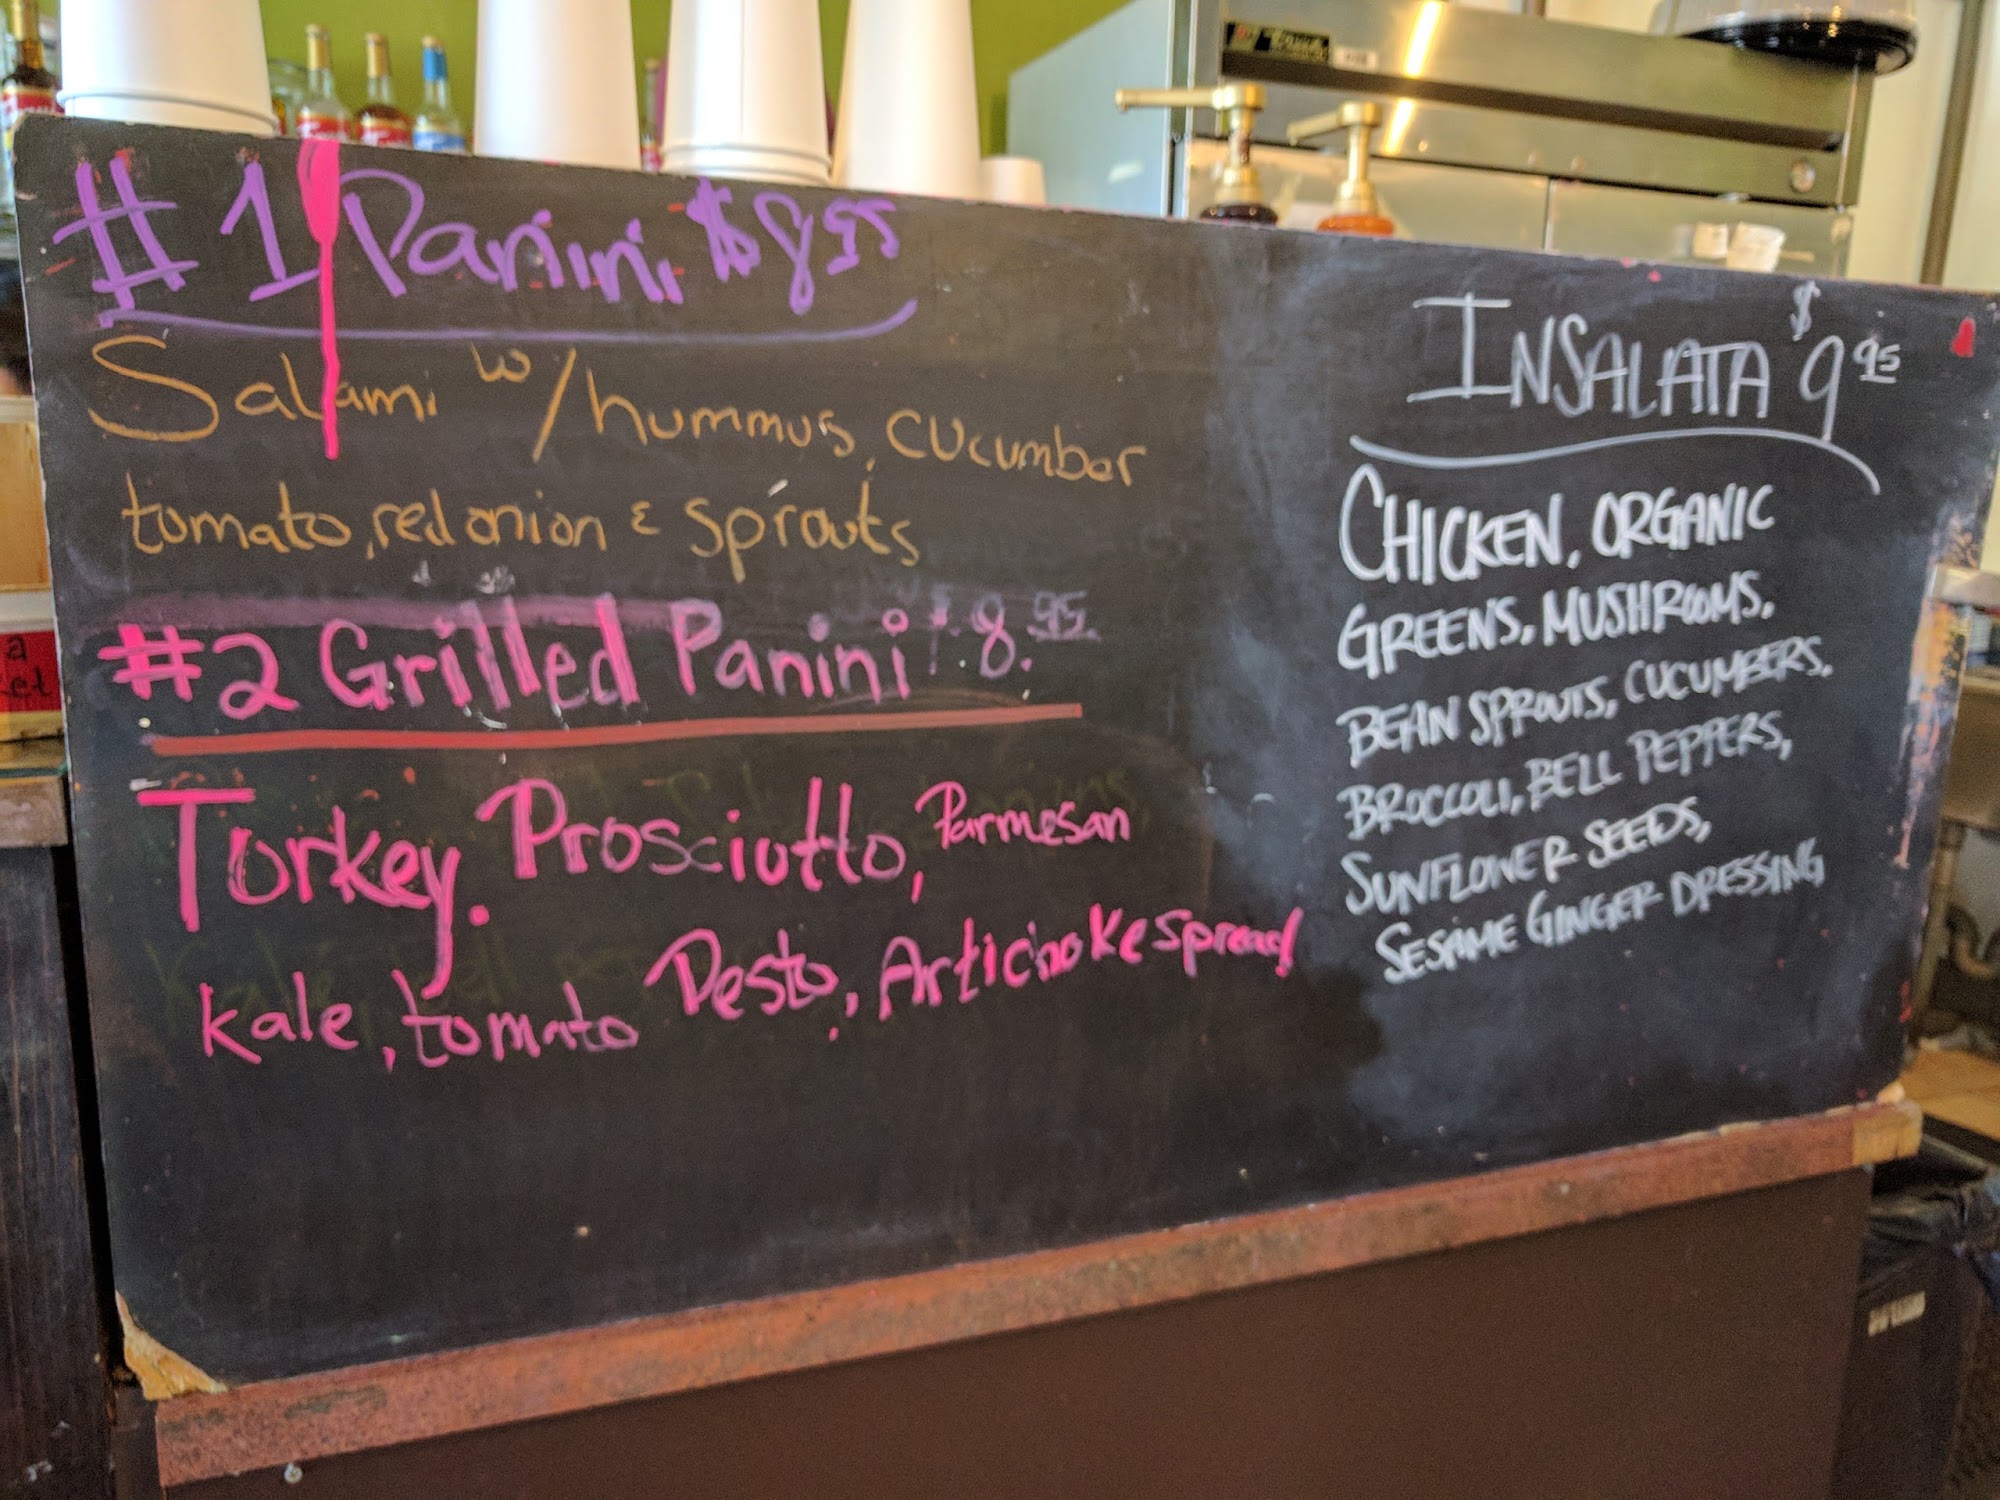 #1 Panini $8.95
Salami w/hummus, cucumber
tomato, red onion & sprouts
#2 Grilled Panini 8.95
Torkey. Prosciutto, Parmesan
kale, tomato Pesto, Artichoke spread
INSALATA $9.95
CHICKEN, ORGANIC
GREENS, MUSHROOMS,
BEAN SPROUTS, CUCUMBERS,
BROCCOLI, BELL PEPPERS,
SUNFLOWER SEEDS,
SESAME GINGER DRESSING